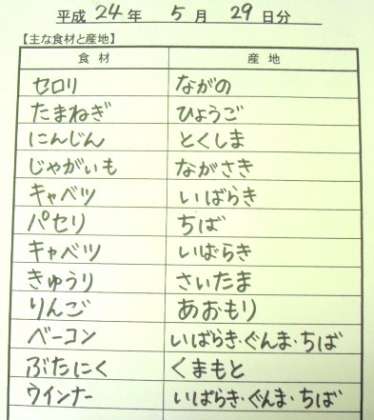 平成 24 年 5 月 29 日分
【主な食材と産地】
食材 産地
セロリ ながの
たまねぎ ひょうご
にんじん とくしま
じゃがいも ながさき
キャベツ いばらき
パセリ ちば
キャベツ いばらき
きゅうり さいたま
りんご あおもり
ベーコン いばらき・ぐんま・ちば
ぶたにく くまもと
ウインナー いばらき・ぐんま・ちば